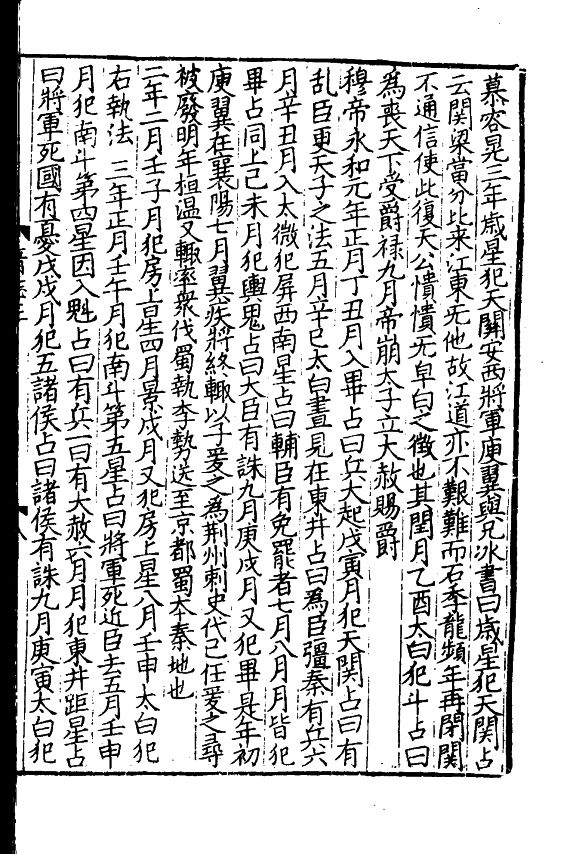 慕容晃三年歲星犯天關安西將軍庾翼與兄冰書曰歲星犯天関占
云関梁當分比来江東无他故江道亦不艱難而石季龍頻年再閉関
不通信使此復天公憒憒无皁白之徴也其閏月乙酉太白犯斗占曰
為喪天下受爵禄九月帝崩太子立大赦賜爵
穆帝永和元年正月丁丑月入畢占曰兵大起戊寅月犯天関占曰有
乱臣更天子之法五月辛巳太白晝見在東井占曰為臣彊秦有兵六
月辛丑月入太微犯屏西南星占曰輔臣有免罷者七月八月月皆犯
畢占同上己未月犯輿鬼占曰大臣有誅九月庚戌月又犯畢是年初
庾翼在襄陽七月翼疾將終輙以子爰之為荆州刺史代己任爰之尋
被廢明年桓温又輙率衆伐蜀執李勢送至京都蜀夲秦地也
二年二月壬子月犯房上星四月景戌月又犯房上星八月壬申太白犯
右執法 三年正月壬午月犯南斗第五星占曰將軍死近臣去五月壬申
月犯南斗第四星因入魁占曰有兵一曰有大赦六月月犯東井距星占
曰將軍死國有憂戊戌月犯五諸侯占曰諸侯有誅九月庚寅太白犯